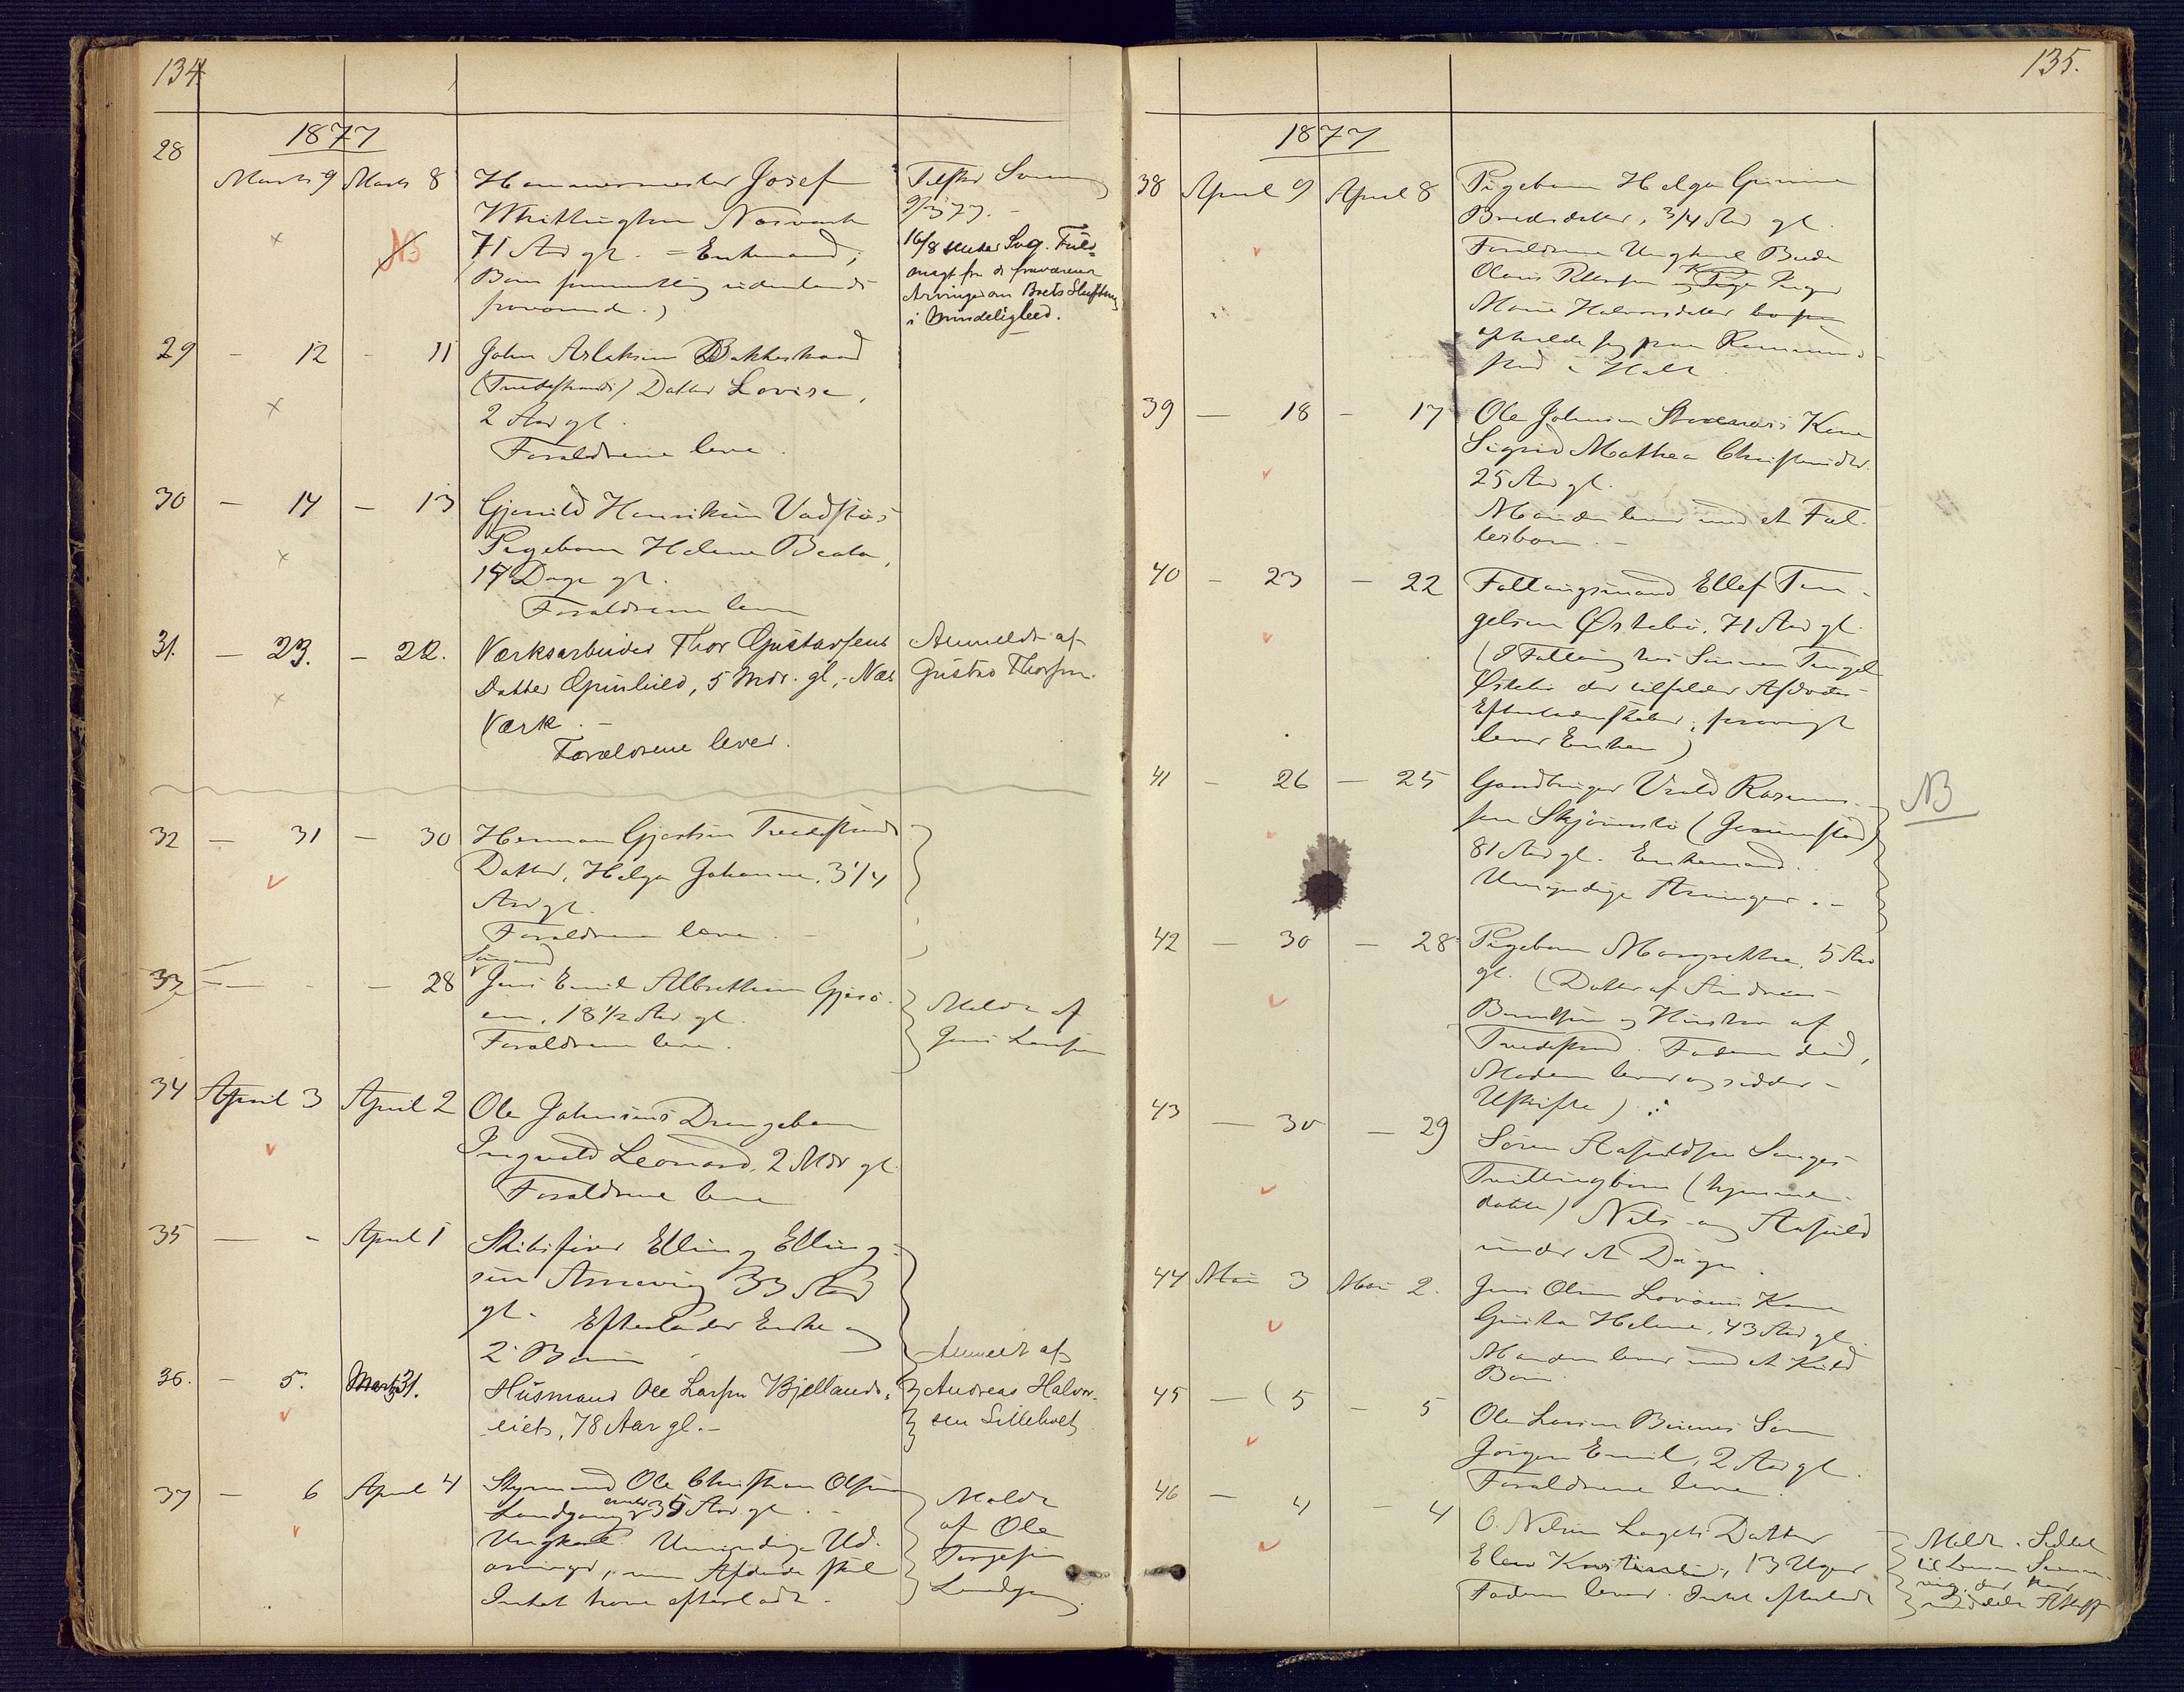 134
1877
28
Marts 9 Marts 8 Hammermester Josef
Whittington Næsværk
NB
71 Aar gl. = Enkemand;
Børn udenlands
fraværende.)
9/3 77.
16/8 Fuld-
magt fra de fraværende
Arvinger om Boets Slutning
i Mindelighed.
29 - 12 - 11 John Aslaksen Bakkeskaad
(Tvedestrand) Datter Lovise,
2 Aar gl.
Forældrene leve.
30 - 14 - 13 Gjeruld Henriksen Vadstøs
Pigebarn Helene Beata,
14 Dage gl.
Forældrene leve
31. - 23. - 22. Værksarbeider Thor Gustavsens
Datter Gunhild, 5 Mdr. gl., Næs
Værk. -
Forældrene lever.
Anmeldt af
Gustav Thorsen.
32 - 31 - 30 Herman Gjertsen Tvedestrand
Datter, Helga Johanne, 3 1/4
Aar gl.
Forældrene leve.
33 - - 28 Sømand
Jens Emil Albrethsen Gjesø-
en, 18 1/2 Aar gl.
Forældrene leve.
Meldt af
Jens Larsen
34 April 3 April 2 Ole Johnsens Drengebarn
Ingvald Leonard, 2 Mdr gl.
Forældrene leve
35 - - April 1 Skibsfører Elling Elling-
sen Arnevig 33 Aar
gl. Efterlader Enke og
2 Børn
36. - 5. Marts 31. Husmand Ole Larsen Bjellands-
eiet, 78 Aar gl. -
Anmeldt af
Andreas Halvor-
sen Lilleholt
37 - 6 April 4 Styrmand Ole Christian Olsen
Landgang 35 Aar gl.
Ungkarl. Umyndige Ud-
arvinger, men Afdøde skal
Intet have efterladt.
Meldt
af Ole
Terjesen
Landgang.
135.
1877
38 April 9 April 8 Pigebarn Helga Gurine
Bredesdatter, 3/4 Aar gl.
Forældrene Ungkarl Brede
Olaus Pettersen og Pige Inger
Marie Halvorsdatter
opholde sig paa
i Holt.
39 - 18 - 17 Ole Johnsen Kone
Sigrid Mathea Christensdtr.
25 Aar gl.
Manden lever med et Fæl-
lesbarn. -
40 - 23 - 22 Follaugsmand Ellef Ten-
gelsen Østebø, 71 Aar gl.
(I Follaug hos Sønnen Tengel
Østebø der tilfalder Afdødes
Efterladenskaber, forøvrigt
lever Enken)
41 - 26 - 25 Gaardbruger Vrold Rasmus-
sen Skjøveslø (Gjerrestad)
81 Aar gl. Enkemand.
Umyndige Arvinger. -
NB
42 - 30 - 28 Pigebarn Margrethe, 5 Aar
gl. (Datter af Andreas
og Hustru af
Tvedestrand. Faderen død,
Moderen lever og sidder
Uskifte)
43 - 30 - 29 Søren Aasuldsen Songes
Tvillingbørn (hjemme-
døbte) Nils og Aasuld
under et Døgn.
44 Mai 3 Mai 2. Jens Olsen Lovøens Kone
Gurika Helene, 43 Aar gl.
Manden lever med et Kuld
Børn.
45 - 5 - 5 Ole Larsen Søn
Jørgen Emil, 2 Aar gl.
Forældrene leve.
46 - 4 - 4 O. Nilsen Lagets Datter
Elen 13 Uger
Faderen lever. Intet efterladt
Meldt. Seddel
til
der har